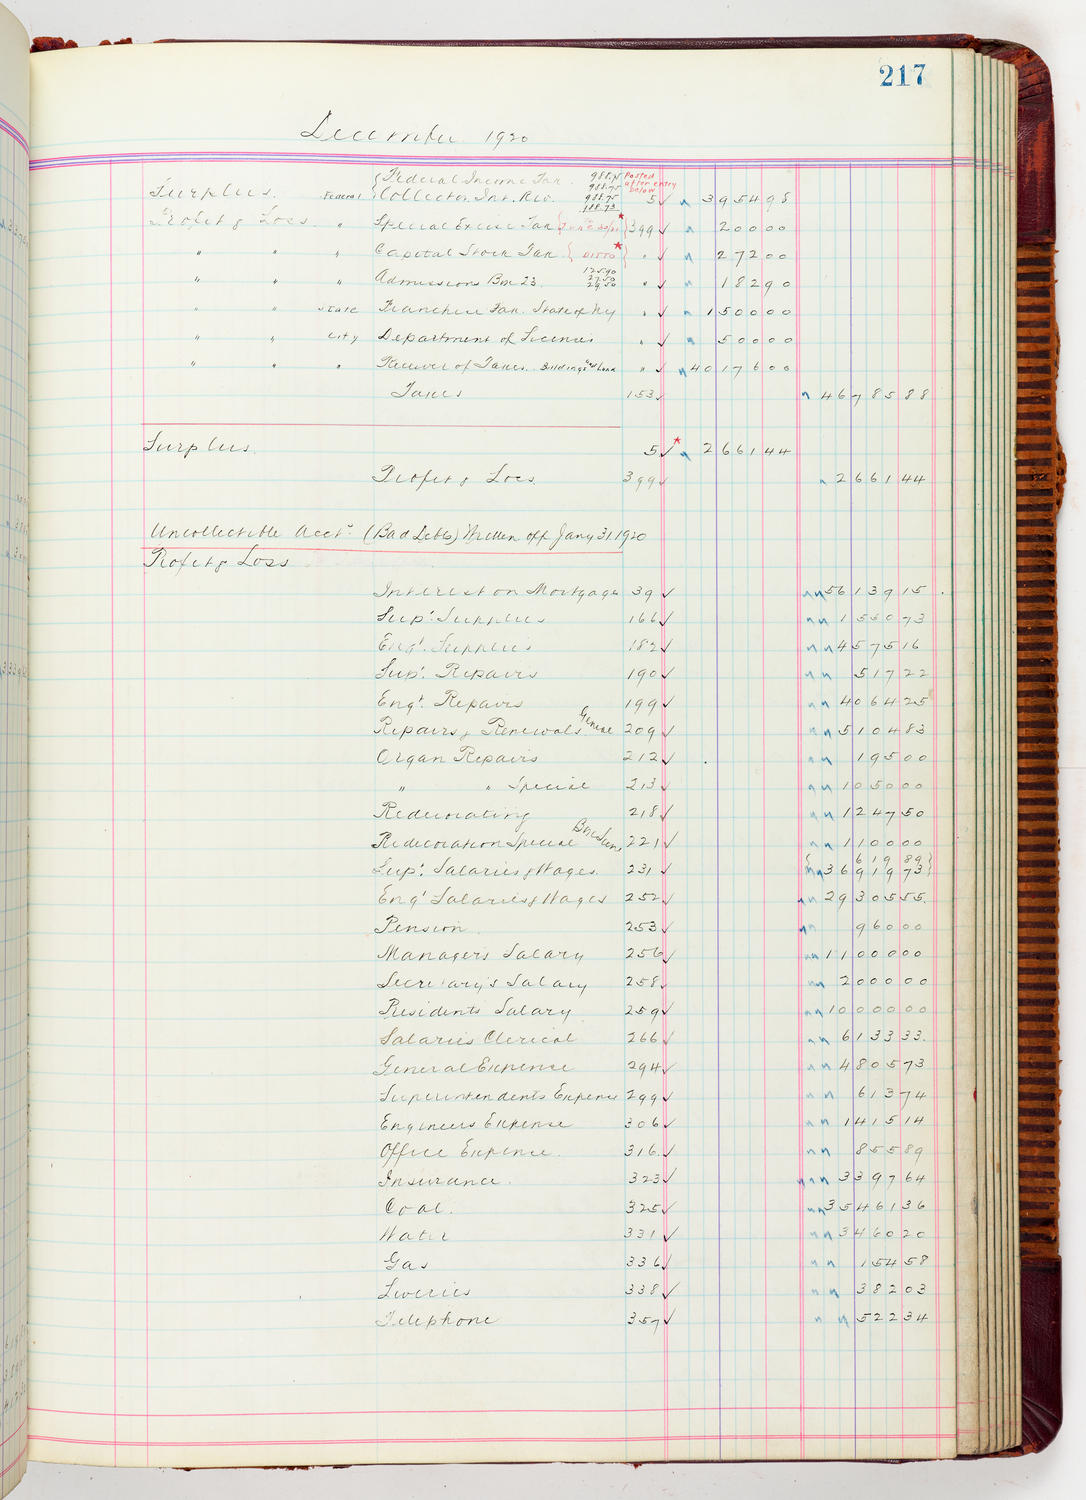 217
December 1920
Surplus. Federal { Federal Income Tax. 988.75 988.75 988.75 988.73 Posted after entry below
Collector Int. Rev. 5 ✓ 3954 98
Profit & Loss " Special Excise Tax 399 ✓ 200 00
" " " Capital Stock Tax { Ditto } * " ✓ 272 00
" " " Admissions Box 23. 125.90 27.50 29.50 " ✓ 182 90
" " State Franchise Tax. State of NY " ✓ 1500 00
" " City Department of Licenses " ✓ 500 00
" " " Receiver of Taxes. Buildings and Land " ✓ 40176 00
Taxes 153 ✓ 46785 88
Surplus. 5 ✓ * 2661 44
Profit & Loss 399 ✓ 2661 44
Uncollectible Acct's (Bad Debts) Written off Jany 31, 1920
Profit & Loss
Interest on Mortgage 39 ✓ 56139 15
Sup't. Supplies 166 ✓ 1550 73
Eng'r. Supplies 182 ✓ 4575 16
Sup't. Repairs 190 ✓ 517 22
Eng'r. Repairs 199 ✓ 4064 25
Repairs & Renewals General 209 ✓ 5104 83
Organ Repairs 212 ✓ 195 00
" " Special 213 ✓ 1050 00
Redecorating 218 ✓ 1247 50
Redecoration Special 221 ✓ 1100 00
Sup't. Salaries & Wages. 231 ✓ { 619 89 36919 73 }
Eng'r Salaries & Wages 252 ✓ 29305 55
Pension 253 ✓ 960 00
Managers Salary 256 ✓ 11000 00
Secretary's Salary 258 ✓ 2000 00
Presidents Salary 259 ✓ 10000 00
Salaries Clerical 266 ✓ 6133 33
General Expense 294 ✓ 4805 73
Superintendents Expense 299 ✓ 613 74
Engineers Expense 306 ✓ 1415 14
Office Expense. 316 ✓ 855 89
Insurance. 323 ✓ 3397 64
Coal. 325 ✓ 35461 36
Water 331 ✓ 3460 20
Gas 336 ✓ 154 58
Liveries 338 ✓ 382 03
Telephone 357 ✓ 522 34